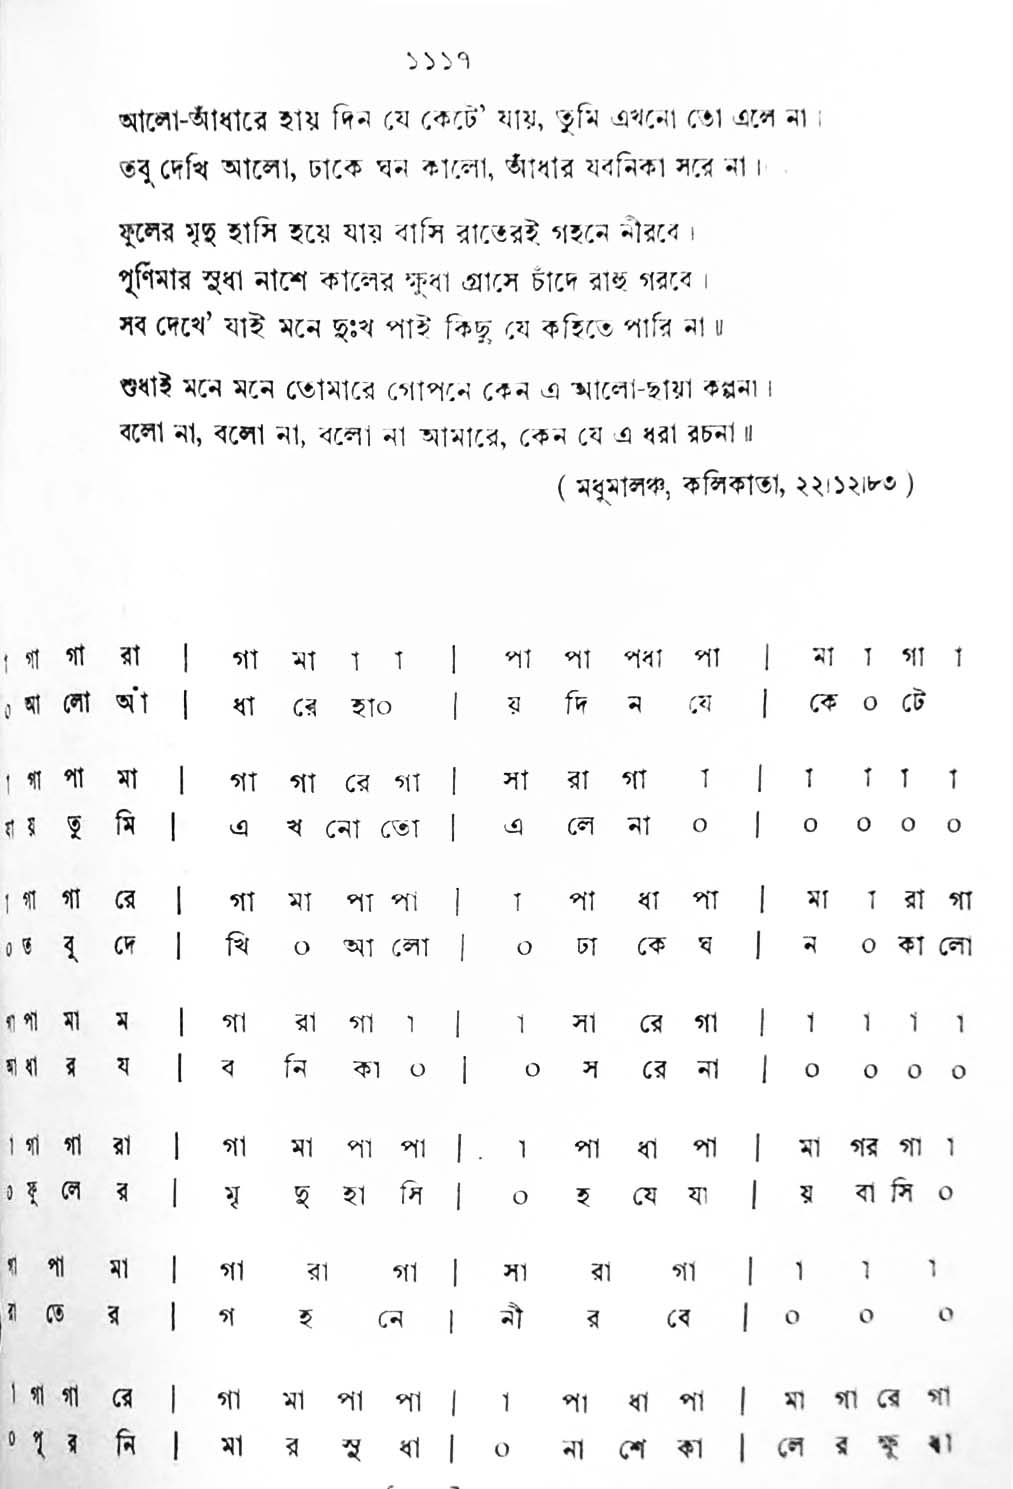 ১১১৭
আলো-আঁধারে হায় দিন যে কেটে’ যায়, তুমি এখনো তো এলে না।
তবু দেখি আলো, ঢাকে ঘন কালো, আঁধার যবনিকা সরে না।
ফুলের মৃদু হাসি হয়ে যায় বাসি রাতেরই গহনে নীরবে।
পূর্ণিমার সুধা নাশে কালের ক্ষুধা গ্রাসে চাঁদে রাহু গরবে।
সব দেখে’ যাই মনে দুঃখ পাই কিছু যে কহিতে পারি না॥
শুধাই মনে মনে তোমারে গোপনে কেন এ আলো-ছায়া কল্পনা।
বলো না, বলো না, বলো না আমারে, কেন যে এ ধরা রচনা॥
( মধুমালঞ্চ, কলিকাতা, ২২।১২।৮৩ )
া গা গা রা | গা মা া া | পা পা পধা পা | মা া গা া
০ আ লো আঁ | ধা রে হা০ | য় দি ন যে | কে ০ টে
া গা পা মা | গা গা রে গা | সা রা গা া | া া া া
যা য় তু মি | এ খ নো তো | এ লে না ০ | ০ ০ ০ ০
া গা গা রে | গা মা পা পা | া পা ধা পা | মা া রা গা
০ ত বু দে | খি ০ আ লো | ০ ঢা কে ঘ | ন ০ কা লো
গা পা মা ম | গা রা গা া | া সা রে গা | া া া া
আ ধা র য | ব নি কা ০ | ০ স রে না | ০ ০ ০ ০
া গা গা রা | গা মা পা পা | া পা ধা পা | মা গর গা া
০ ফু লে র | মৃ দু হা সি | ০ হ যে যা | য় বা সি ০
গা পা মা | গা রা গা | সা রা গা | া া া
রা তে র | গ হ নে | নী র বে | ০ ০ ০
া গা গা রে | গা মা পা পা | া পা ধা পা | মা গা রে গা
০ পূ র নি | মা র সু ধা | ০ না শে কা | লে র ক্ষু ধা